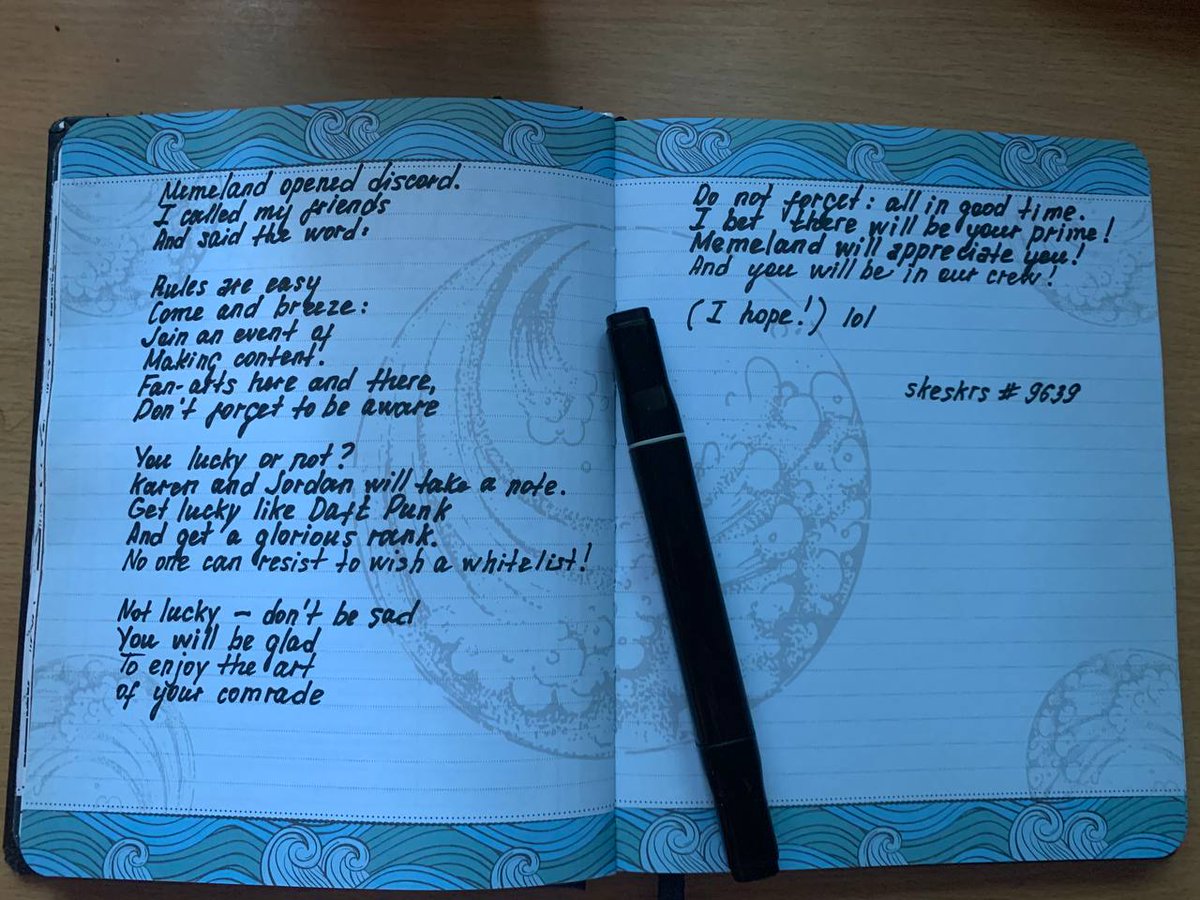 Memeland opened discord.
I called my friends
And said the word:
Rules are easy
Come and breeze:
Join an event of
Making content.
Fan-arts here and there,
Don't forget to be aware
You lucky or not?
Karen and Jordan will take a note.
Get lucky like Daft Punk
And get a glorious rank.
No one can resist to wish a whitelist!
Not lucky – don't be sad
You will be glad
To enjoy the art
of your comrade
Do not forget: all in good time.
I bet there will be your prime!
Memeland will appreciate you!
And you will be in our crew!
(I hope!) lol
skeskrs # 9639